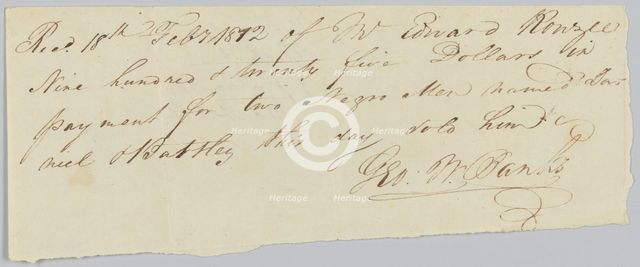 Recd. 18th Feby 1812 of Mr Edward Rouzee
Nine hundred & twenty five Dollars in
payment for two Negro Men named Da-
niel & Battley this day sold him &c
Geo. W. Banks
Heritage
Heritage
Heritage
Heritage
Heritage
Heritage
Heritage